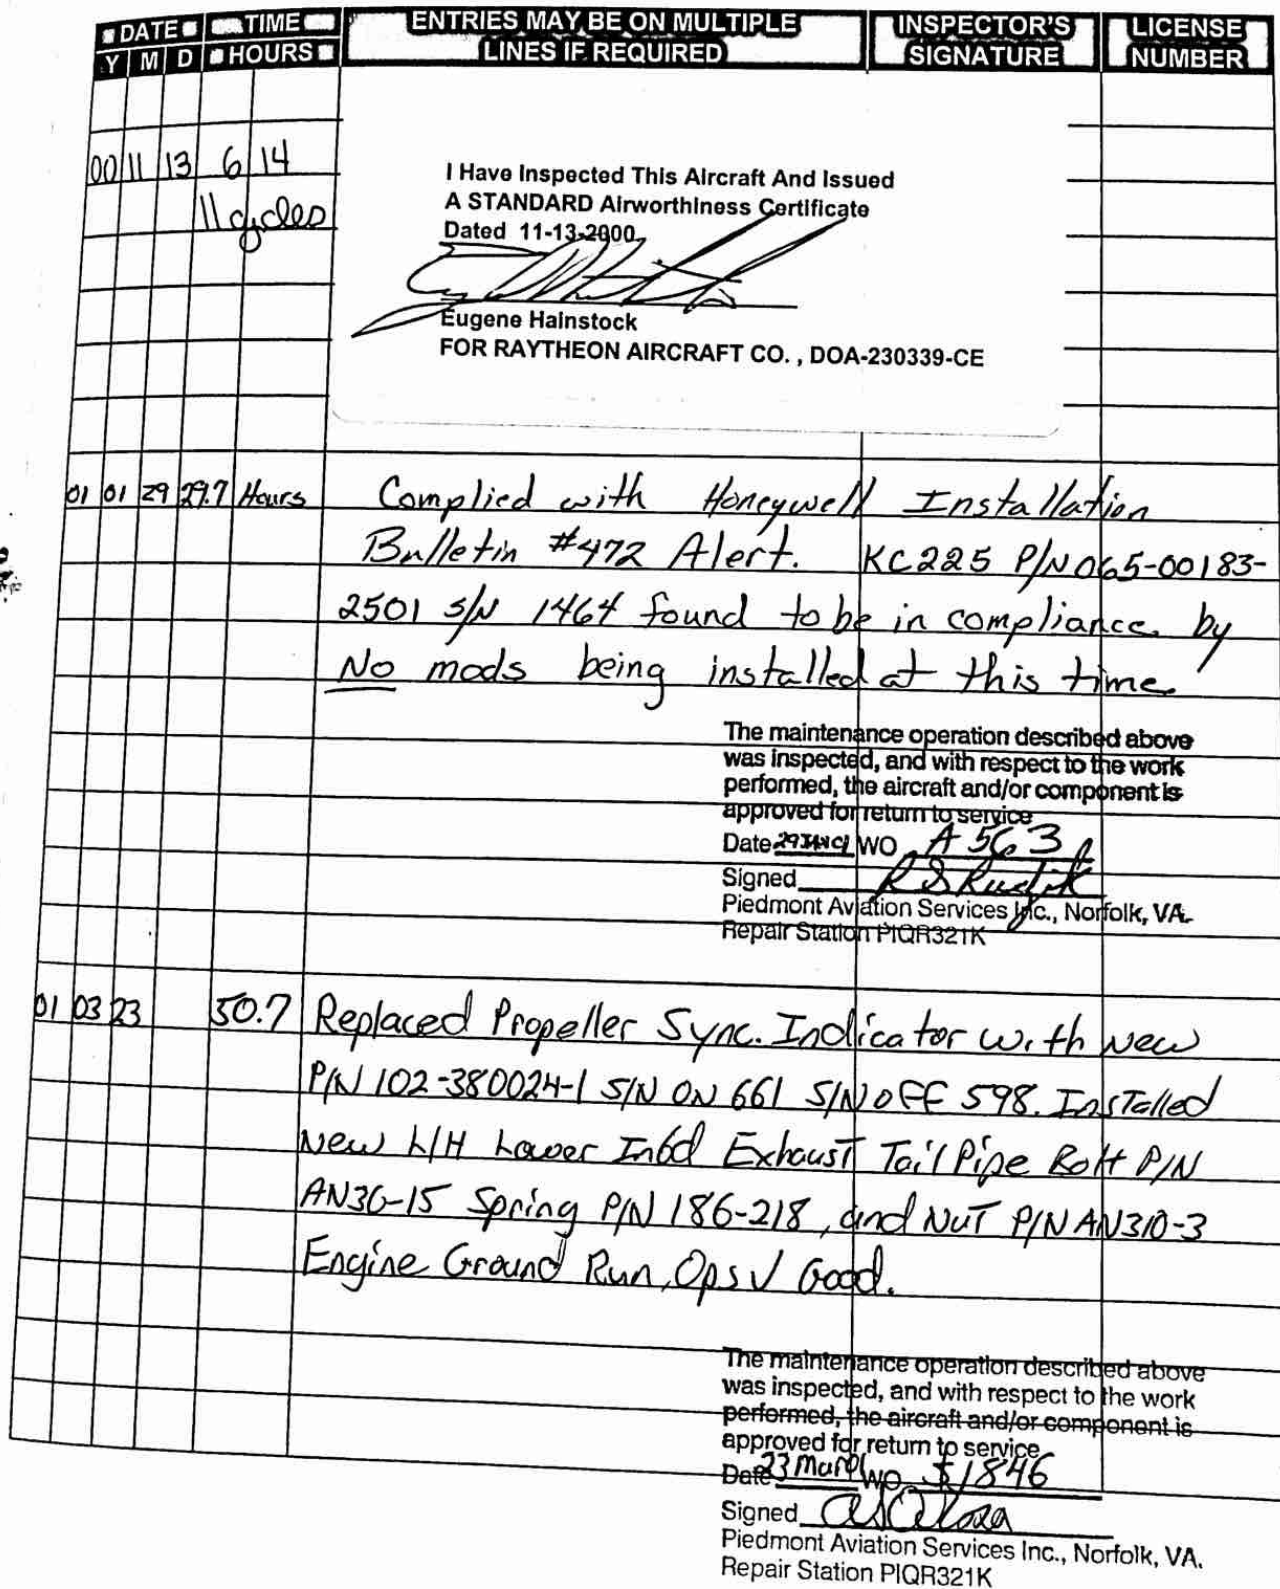 DATE TIME ENTRIES MAY BE ON MULTIPLE INSPECTOR'S LICENSE
Y M D HOURS LINES IF REQUIRED SIGNATURE NUMBER
00 11 13 6 14
11 cycles
I Have Inspected This Aircraft And Issued
A STANDARD Airworthiness Certificate
Dated 11-13-2000
Eugene Hainstock
FOR RAYTHEON AIRCRAFT CO. , DOA-230339-CE
01 01 29 29.7 Hours Complied with Honeywell Installation
Bulletin #472 Alert. KC225 P/N 065-00183-
2501 S/N 1464 found to be in compliance by
No mods being installed at this time
The maintenance operation described above
was inspected, and with respect to the work
performed, the aircraft and/or component is
approved for return to service
Date 29JAN01 WO A 563
Signed
Piedmont Aviation Services Inc., Norfolk, VA.
Repair Station PIQR321K
01 03 23 50.7 Replaced Propeller Sync. Indicator with New
P/N 102-380024-1 S/N ON 661 S/N OFF 598. Installed
New L/H Lower Inbd Exhaust Tail Pipe Bolt P/N
AN3G-15 Spring P/N 186-218, and NUT P/N AN310-3
Engine Ground Run, Ops √ Good.
The maintenance operation described above
was inspected, and with respect to the work
performed, the aircraft and/or component is
approved for return to service
Date 23 Mar 01 WO 51846
Signed
Piedmont Aviation Services Inc., Norfolk, VA.
Repair Station PIQR321K